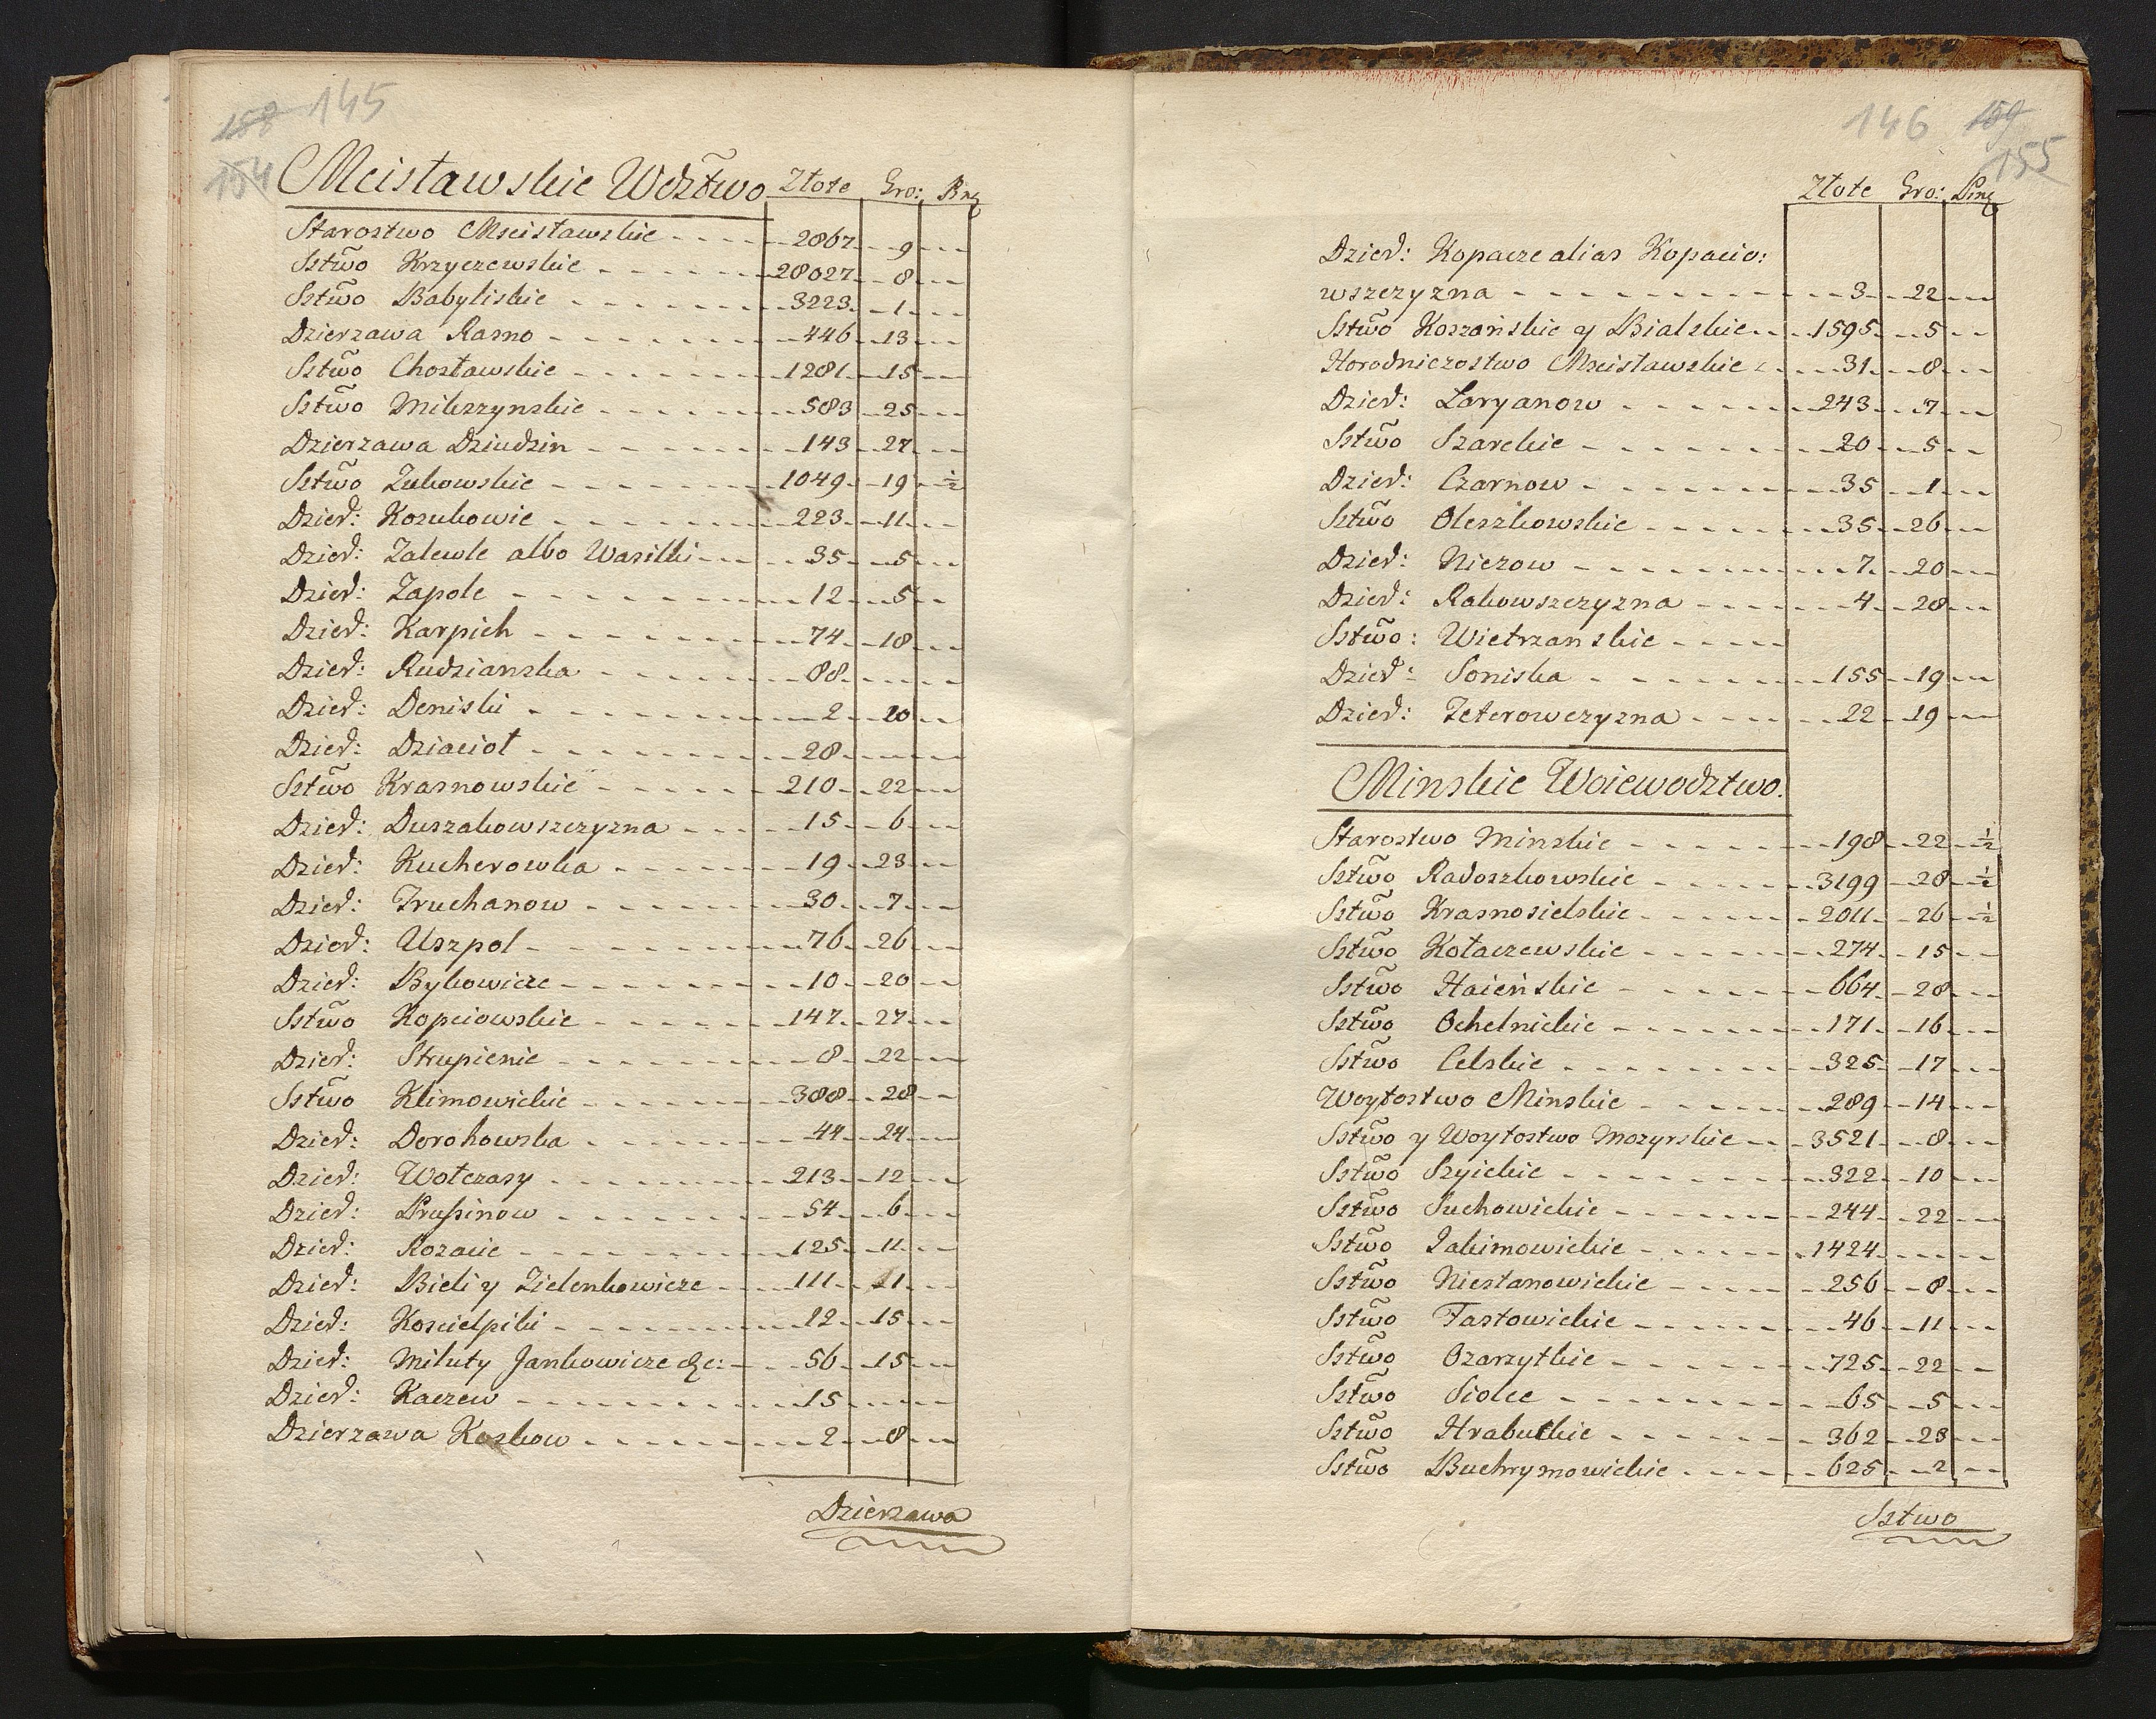 158 145
154
Mcisławskie Wdztwo Złote Gro: Pnz
Starostwo Mscisławskie 2867 9
Sstwo Krzyczewskie 28027 8
Sstwo Babyliskie 3223 1
Dzierzawa Rasno 446 13
Sstwo Chosławskie 1281 15
Sstwo Mikszynskie 583 25
Dzierzawa Dziudzin 143 27
Sstwo Zukowskie 1049 19 ½
Dzied: Kozukowie 223 11
Dzied: Zalewle albo Wasilki 35 5
Dzied: Zapole 12 5
Dzied: Karpich 74 18
Dzied: Rudzianska 88
Dzied: Deniski 2 20
Dzied: Dziacioł 28
Sstwo Krasnowskie 210 22
Dzied: Duszakowszczyzna 15 6
Dzied: Kucherowka 19 23
Dzied: Truchanow 30 7
Dzied: Uszpol 76 26
Dzied: Bykowicze 10 20
Sstwo Kopciowskie 147 27
Dzied: Strupienie 8 22
Sstwo Klimowickie 388 28
Dzied: Dorohowska 44 24
Dzied: Wołczasy 213 12
Dzied: Prusinow 54 6
Dzied: Rozacie 125 11
Dzied: Bieli y Zielenkowicze 111 11
Dzied: Koscielpiki 12 15
Dzied: Mikuty Jankowicze &c: 56 15
Dzied: Kaczew 15
Dzierzawa Koskow 2 8
Dzierzawa
146 159
155
Złote Gro: Pnz
Dzied: Kopacze alias Kopacio:
wszczyzna 3 22
Sstwo Koszańskie y Bialskie 1595 5
Horodniczostwo Mscisławskie 31 8
Dzied: Laryanow 243 7
Sstwo Szareckie 20 5
Dzied: Czarnow 35 1
Sstwo Oleszkowskie 35 26
Dzied: Niezow 7 20
Dzied: Rakowszczyzna 4 28
Sstwo: Wietrzanskie
Dzied: Soniska 155 19
Dzied: Zeterowczyzna 22 19
Minskie Woiewodztwo.
Starostwo Minskie 198 22 ½
Sstwo Radoszkowskie 3199 28 ½
Sstwo Krasnosielskie 2011 26 ½
Sstwo Kołaczewskie 274 15
Sstwo Haieńskie 664 28
Sstwo Ochelnickie 171 16
Sstwo Celskie 325 17
Woytostwo Minskie 289 14
Sstwo y Woytostwo Mozyrskie 3521 8
Sstwo Szyickie 322 10
Sstwo Suchowickie 244 22
Sstwo Jakimowickie 1424
Sstwo Niestanowickie 256 8
Sstwo Fastowickie 46 11
Sstwo Ozarzytkie 725 22
Sstwo Siolce 65 5
Sstwo Hrabuckie 362 23
Sstwo Buchrymowickie 625 2
Sstwo